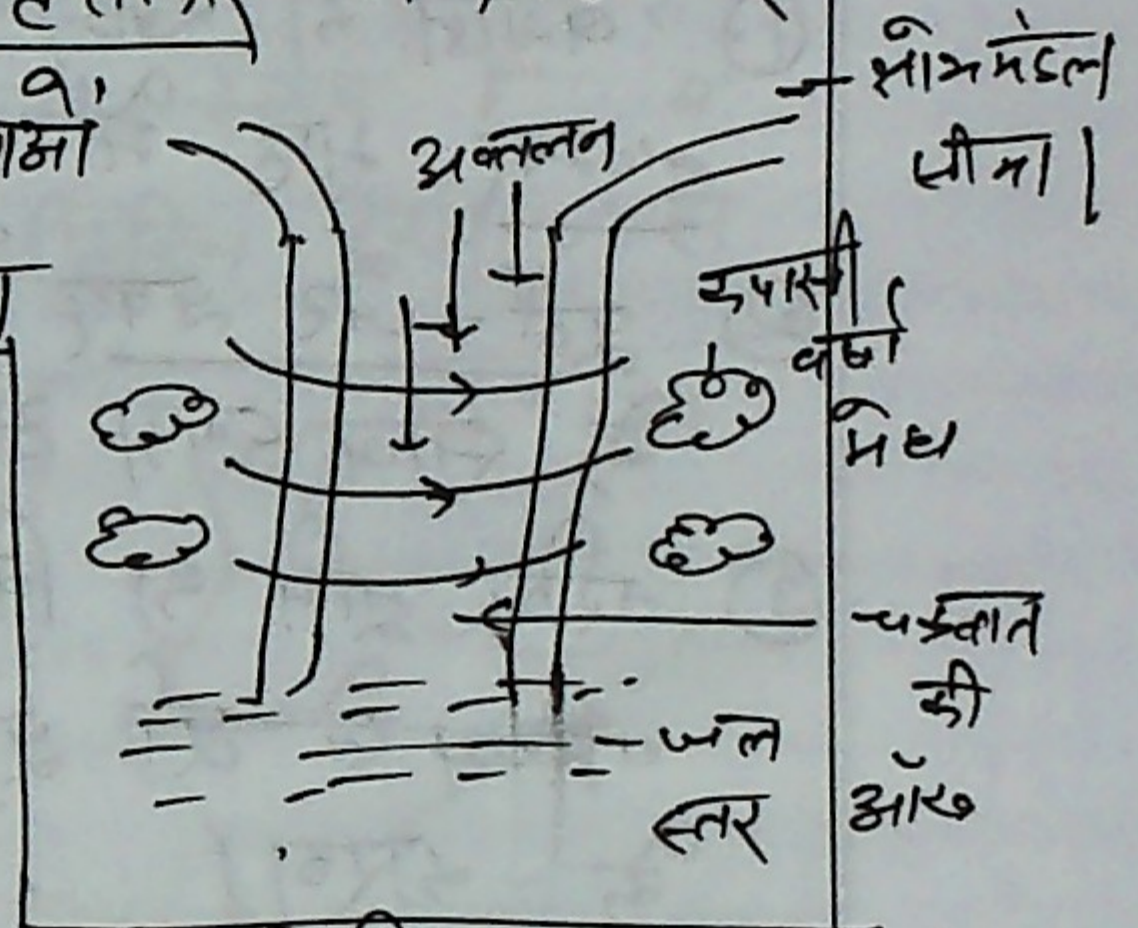 अवतलन
क्षोभमंडल
सीमा।
कपासी
वर्षा
मेघ
चक्रवात
की
आँख
जल
स्तर